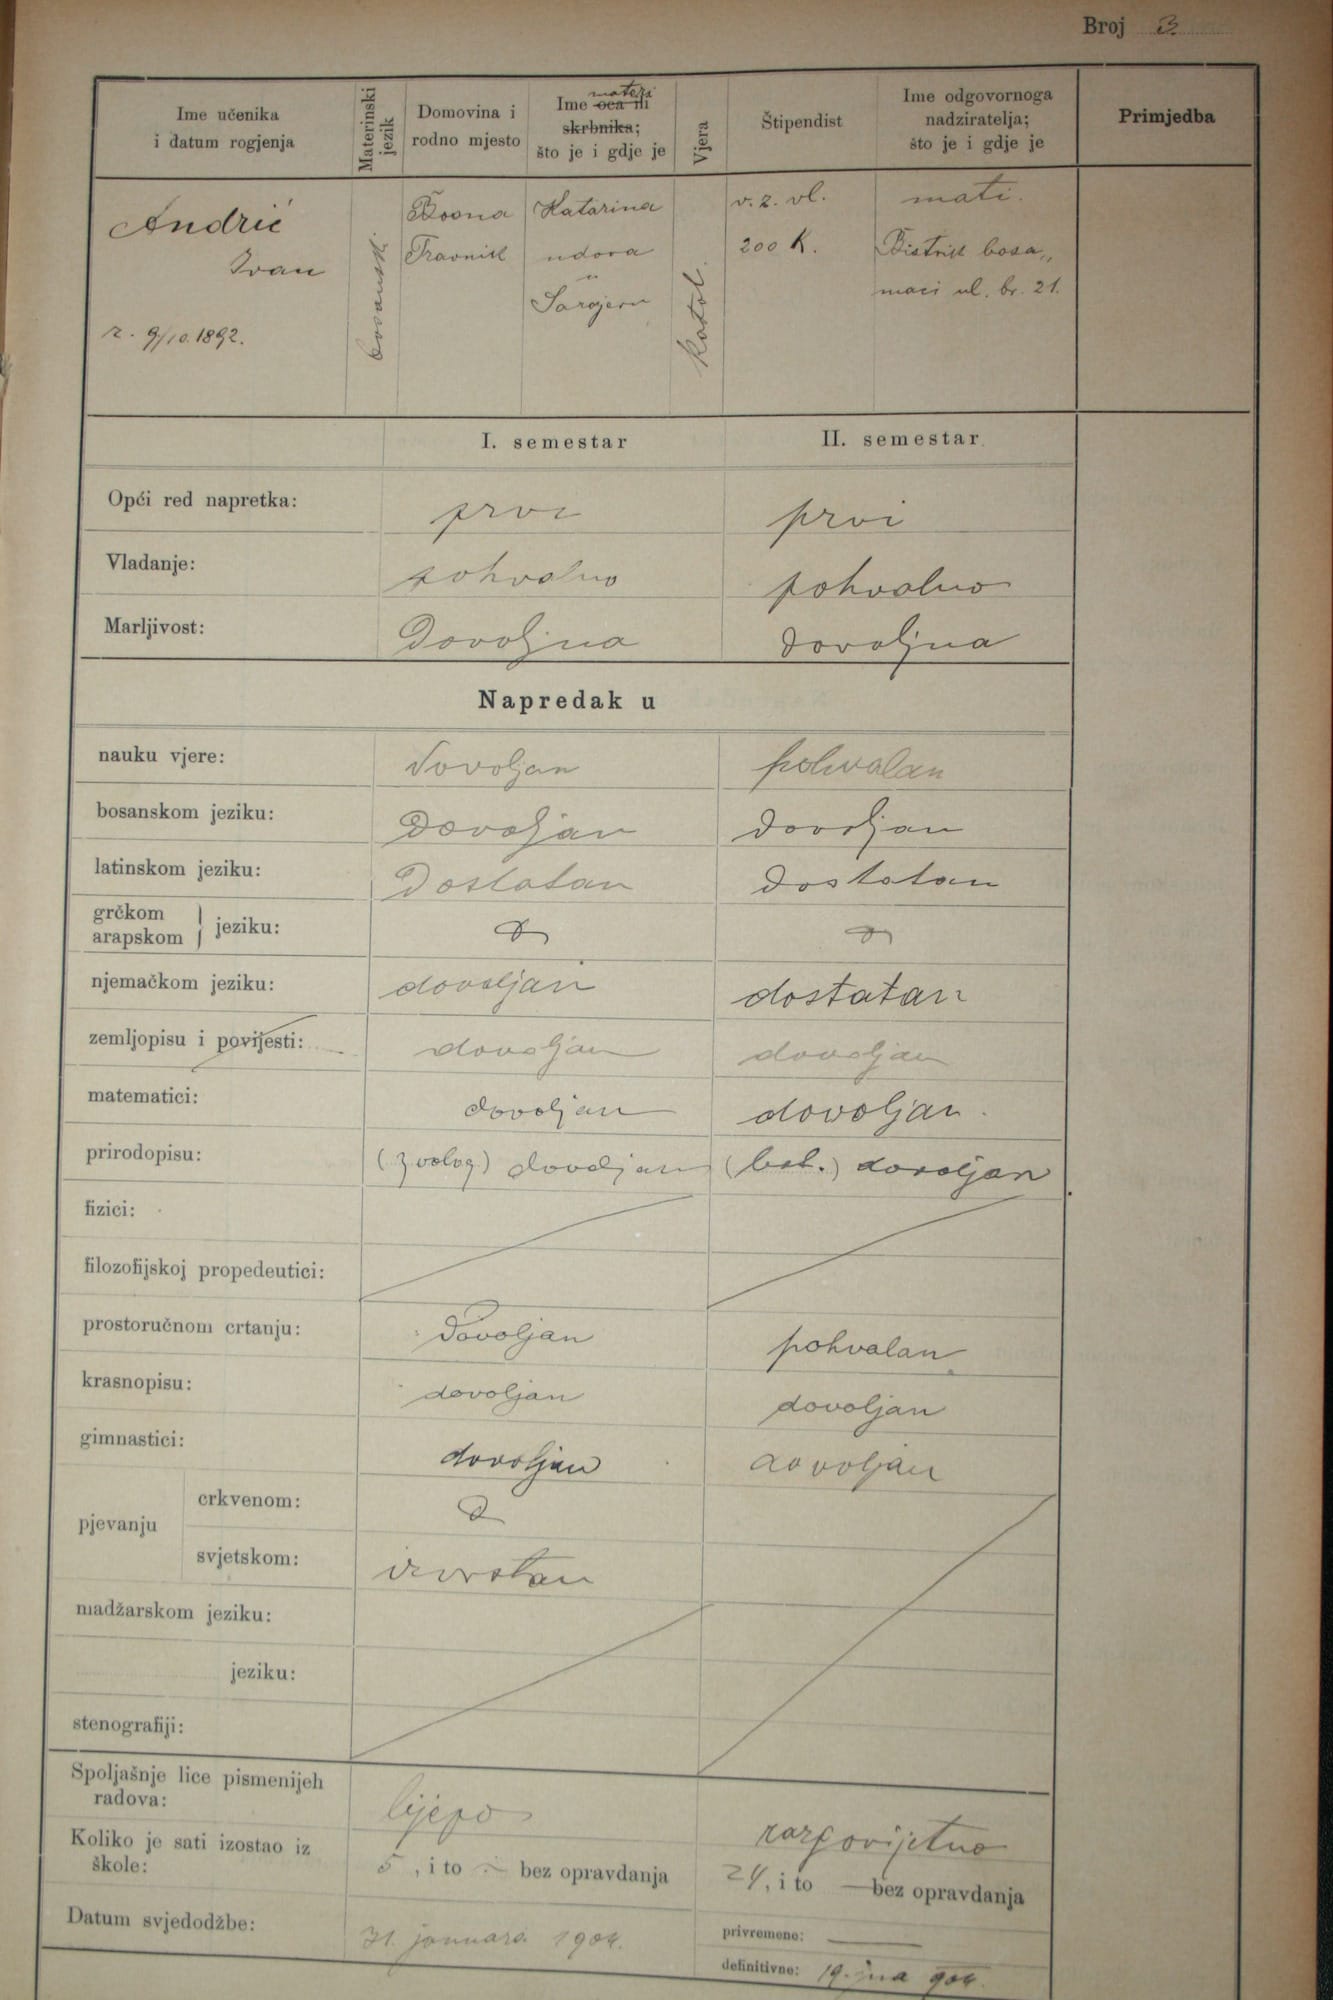 Broj 3.
Ime učenika
i datum rogjenja
Materinski
jezik
Domovina i
rodno mjesto
matera
Ime oca ili
skrbnika;
što je i gdje je
Vjera
Štipendist
Ime odgovornoga
nadziratelja;
što je i gdje je
Primjedba
Andrić
Ivan
r. 9/10.1892.
bosanski
Bosna
Travnik
Katarina
udova
u
Sarajevu
katol.
v. z. vl.
200 K.
mati.
Bistrik basa„
maci ul. br. 21.
I. semestar II. semestar
Opći red napretka: prvi prvi
Vladanje: pohvalno pohvalno
Marljivost: Dovoljna dovoljna
Napredak u
nauku vjere: dovoljan pohvalan
bosanskom jeziku: Dovoljan dovoljan
latinskom jeziku: Dostatan dostatan
grčkom
arapskom } jeziku:
njemačkom jeziku: dovoljan dostatan
zemljopisu i povijesti: dovoljan dovoljan
matematici: dovoljan dovoljan.
prirodopisu: (zoolog.) dovoljan (bot.) dovoljan
fizici:
filozofijskoj propedeutici:
prostoručnom crtanju: Dovoljan pohvalan
krasnopisu: dovoljan dovoljan
gimnastici: dovoljan dovoljan
pjevanju
crkvenom:
svjetskom: izvrstan
madžarskom jeziku:
jeziku:
stenografiji:
Spoljašnje lice pismenijeh
radova: lijepo razgovijetno
Koliko je sati izostao iz
škole: 5, i to — bez opravdanja 24, i to — bez opravdanja
Datum svjedodžbe: 31. januara 1904.
privremene: —
definitivne: 19. juna 904.